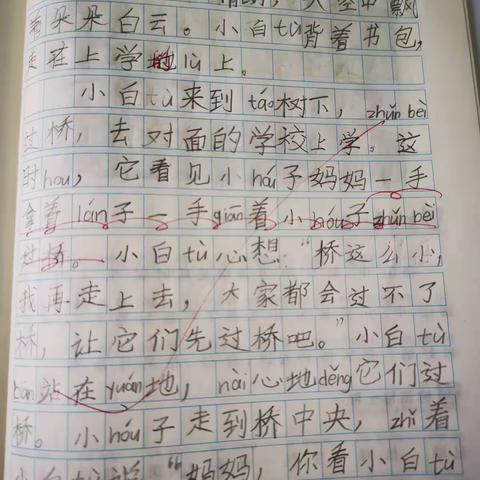 着朵朵白云。小白tù背着书包,
走在上学地lù上。
小白tù来到táo树下,zhǔn bèi
过桥,去对面的学校上学。这
时hou,它看见小hóu子妈妈一手
拿着lán子一手qiān着小hóu子zhǔn bèi
过桥。小白tù心想:“桥这么小,
我再走上去,大家都会过不了
桥,让它们先过桥吧。”小白tù
站在yuán地,nài心地děng它们过
桥。小hóu子走到桥中央,zhǐ着
小白tù说:“妈妈,你看小白tù